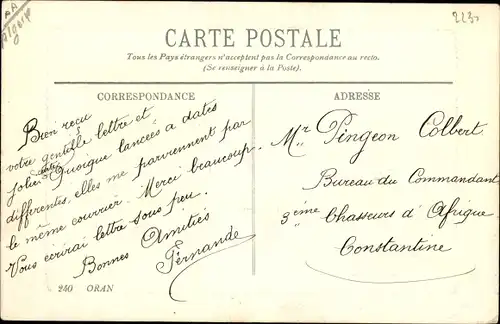 AA
Algérie
2230
CARTE POSTALE
Tous les Pays étrangers n'acceptent pas la Correspondance au recto.
(Se renseigner à la Poste).
CORRESPONDANCE
Bien recu
votre gentille lettre et
jolie carte. Quoique lancées a dates
differentes, elles me parviennent par
le même courrier. Merci beaucoup.
Vous ecrirai lettre sous peu.
Bonnes Amitiés
Fernande
240 ORAN
ADRESSE
Mr. Pingeon Colbert
Bureau du Commandant
3ème Chasseurs d'Afrique
Constantine